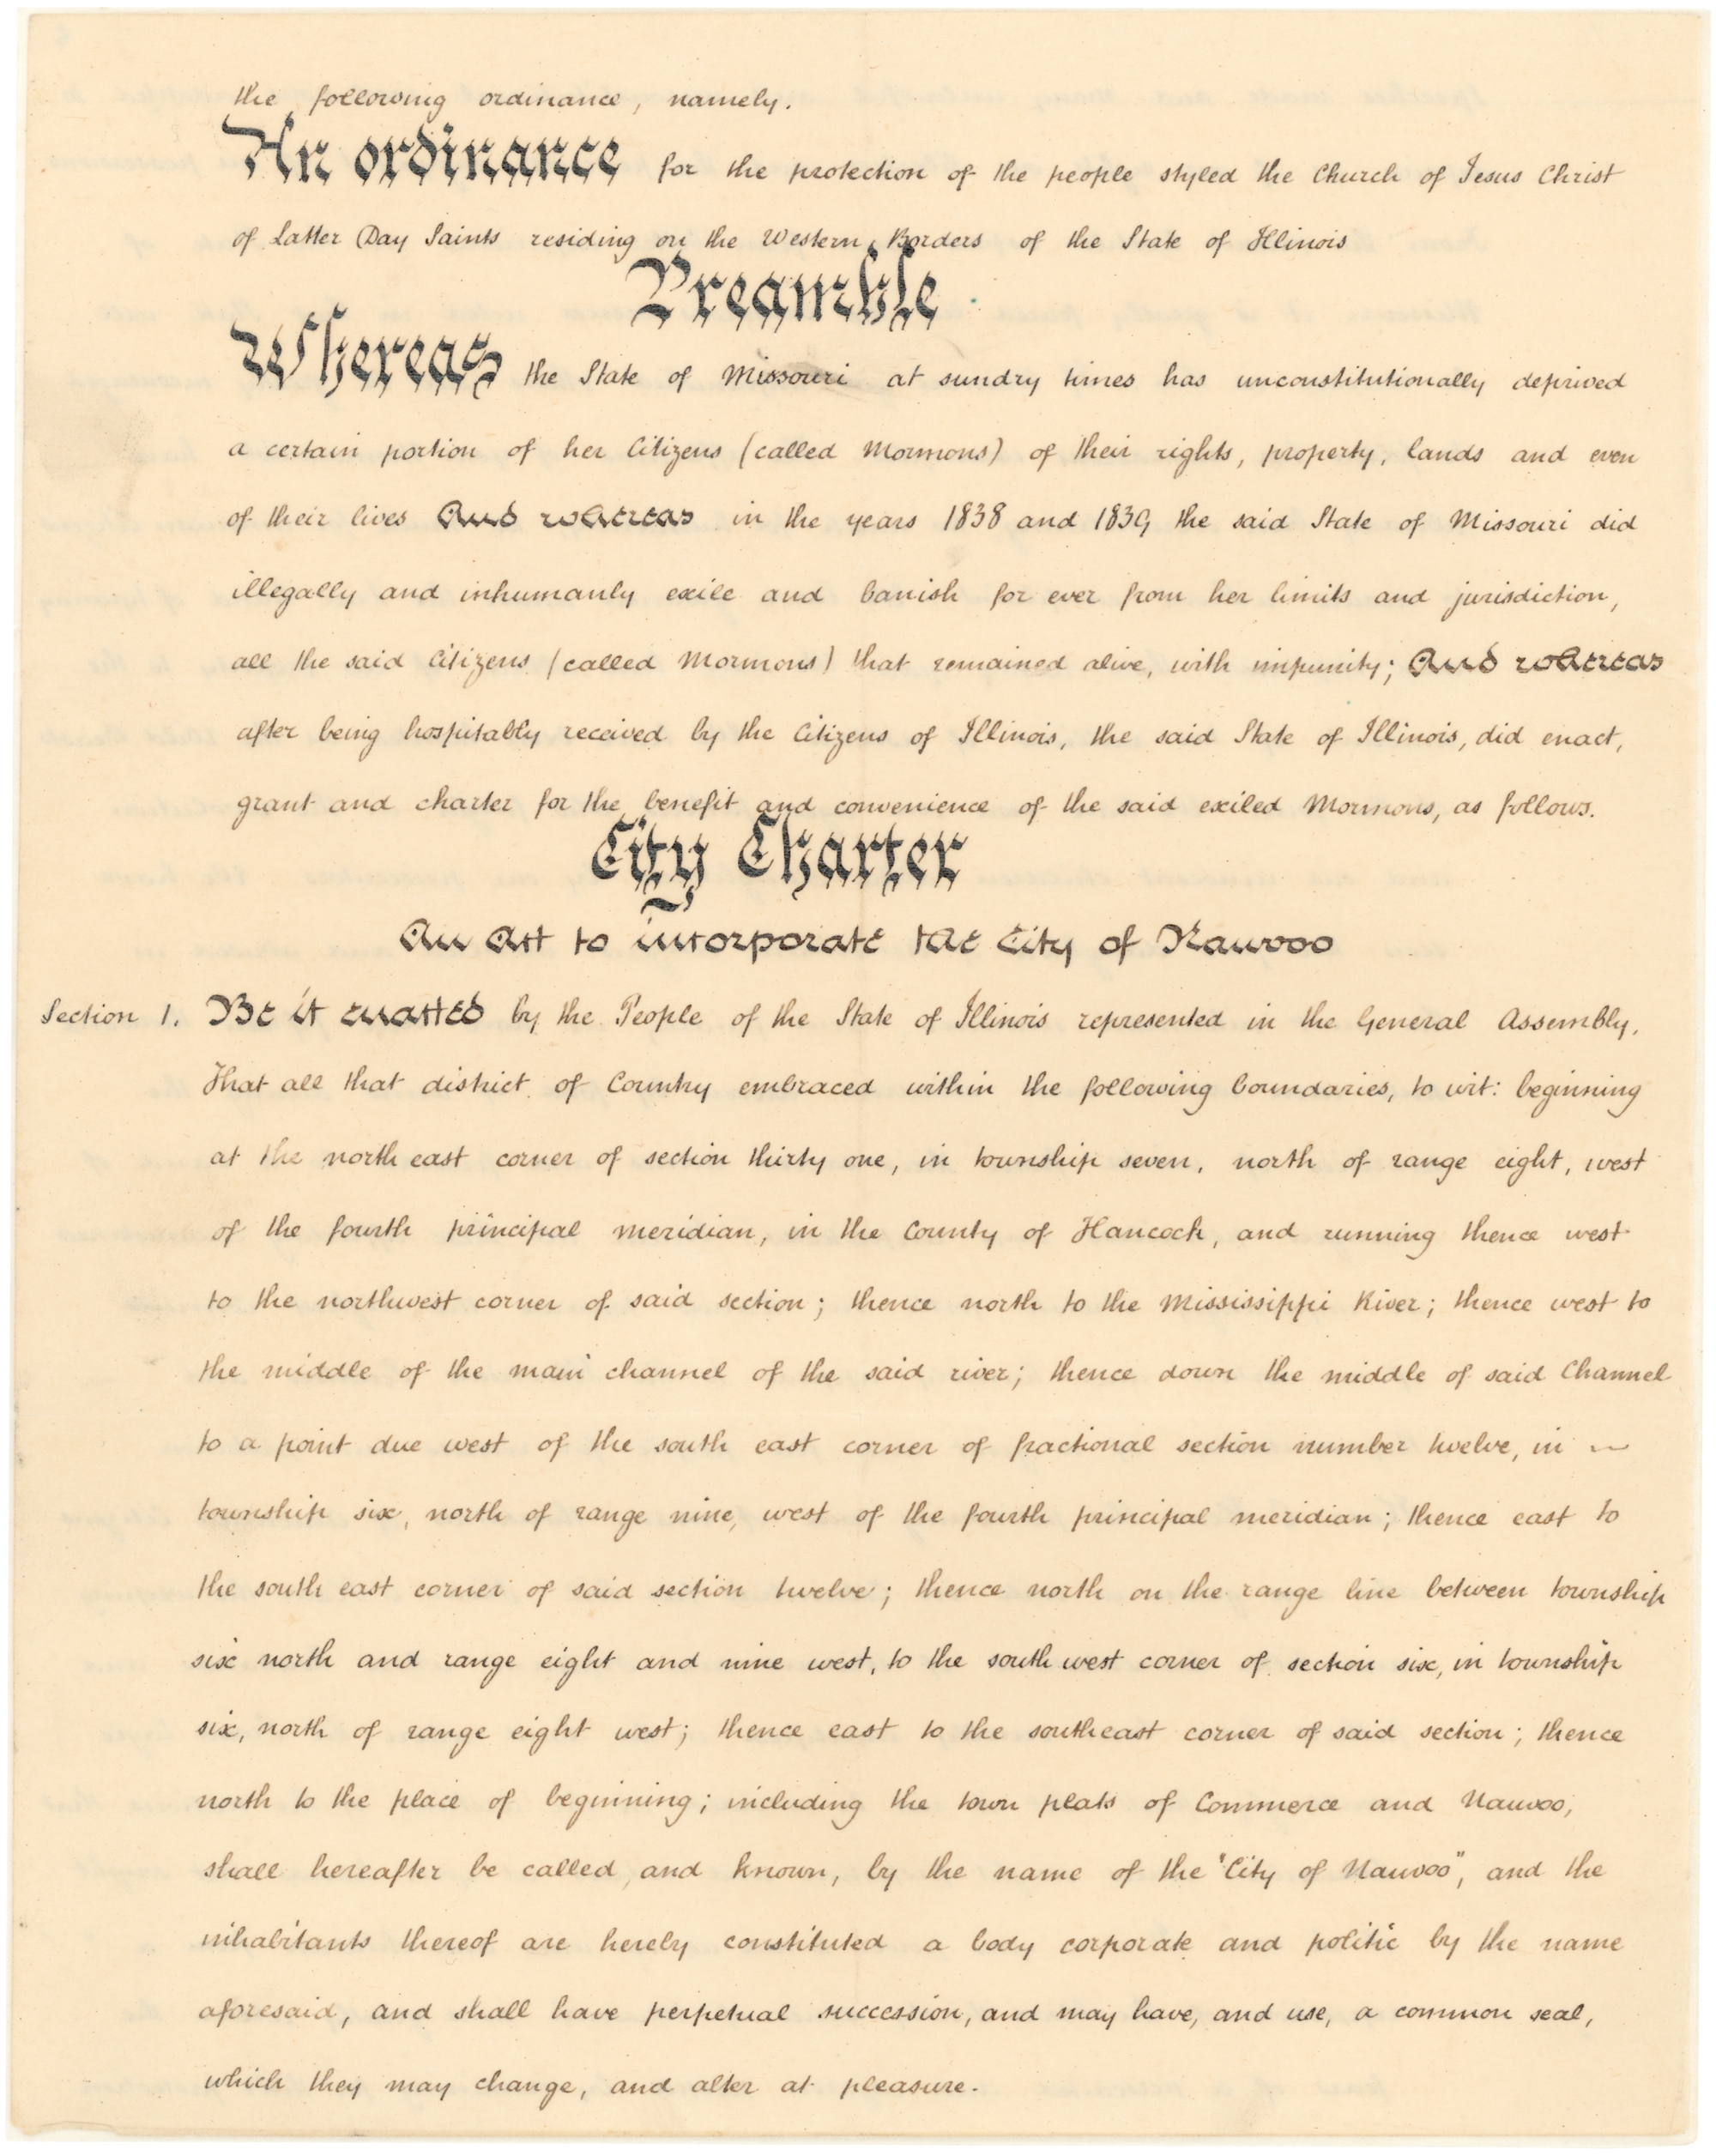 the following ordinance, namely.
An ordinance for the protection of the people styled the Church of Jesus Christ
of Latter Day Saints residing on the Western Borders of the State of Illinois
Preamble
Whereas the State of Missouri at sundry times has unconstitutionally deprived
a certain portion of her Citizens (called Mormons) of their rights, property, lands and even
of their lives And whereas in the years 1838 and 1839 the said State of Missouri did
illegally and inhumanly exile and banish for ever from her limits and jurisdiction,
all the said Citizens (called Mormons) that remained alive, with impunity; And whereas
after being hospitably received by the Citizens of Illinois, the said State of Illinois, did enact,
grant and charter for the benefit and convenience of the said exiled Mormons, as follows.
City Charter
An Act to incorporate the City of Nauvoo
Section 1. Be it enacted by the People of the State of Illinois represented in the General Assembly,
That all that district of Country embraced within the following boundaries, to wit: beginning
at the north east corner of section thirty one, in township seven, north of range eight, west
of the fourth principal meridian, in the County of Hancock, and running thence west
to the northwest corner of said section; thence north to the Mississippi River; thence west to
the middle of the main channel of the said river; thence down the middle of said Channel
to a point due west of the south east corner of fractional section number twelve, in ~
township six, north of range nine, west of the fourth principal meridian; thence east to
the south east corner of said section twelve; thence north on the range line between township
six north and range eight and nine west, to the south west corner of section six, in township
six, north of range eight west; thence east to the southeast corner of said section; thence
north to the place of beginning; including the town plats of Commerce and Nauvoo,
shall hereafter be called, and known, by the name of the "City of Nauvoo", and the
inhabitants thereof are hereby constituted a body corporate and politic by the name
aforesaid, and shall have perpetual succession, and may have, and use, a common seal,
which they may change, and alter at pleasure.